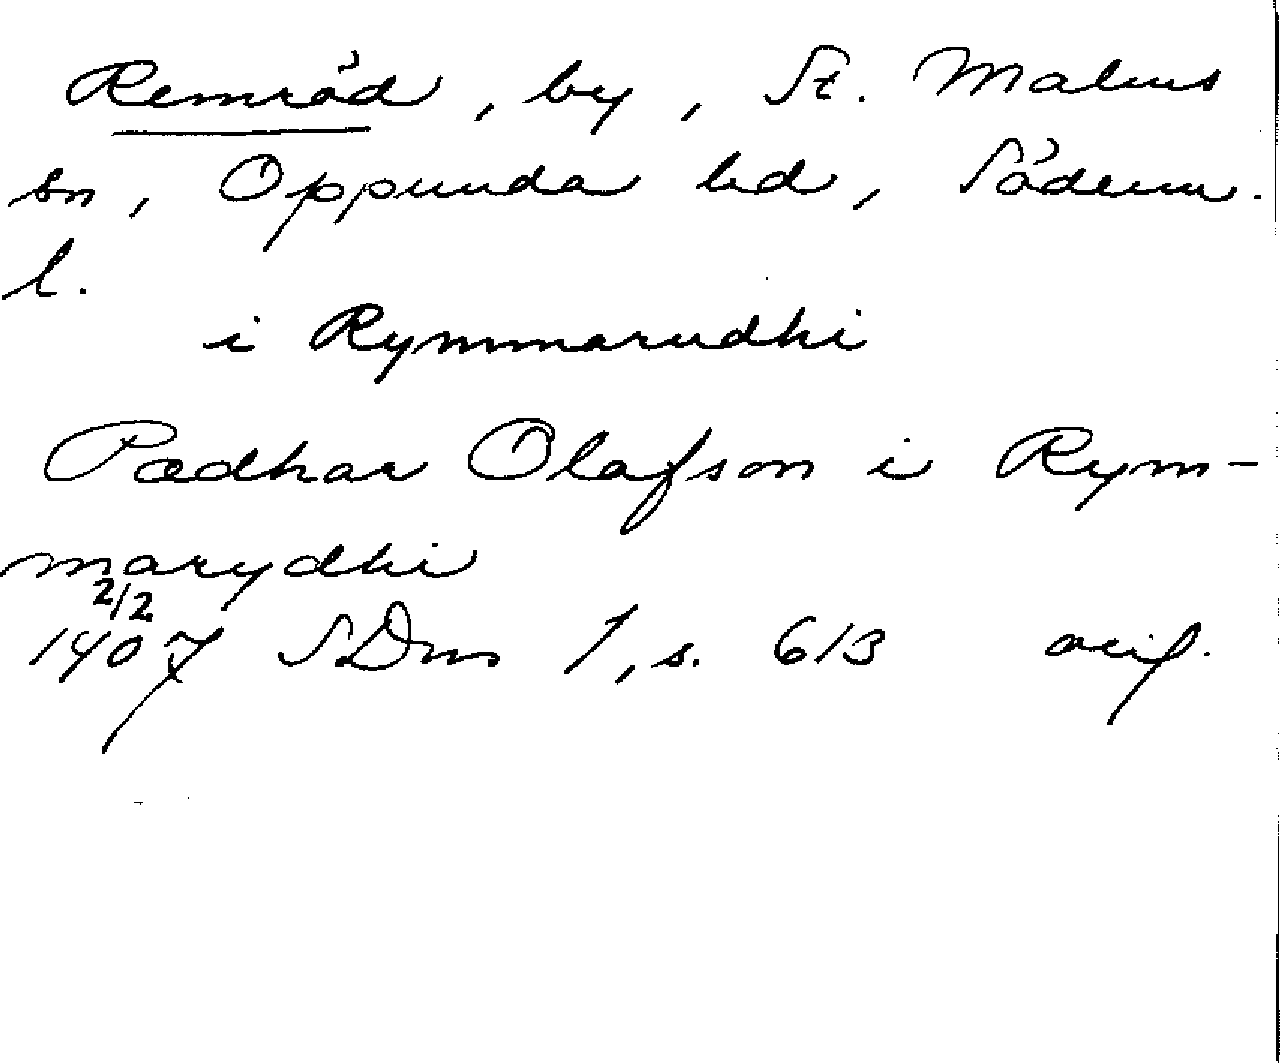 Remröd, by, St. Malms
sn, Oppunda hd, Söderm.
l.
i Rymmarudhi
Pædhar Olafson i Rym-
marydhi
2/2
1407 SDns 1, s. 613 orig.